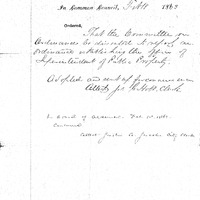 In Common Council, Feb 11 1863
Ordered,
That the Committee on
Ordinances be directed to report an
ordinance establishing the office of
Superintendent of Public Property.
Adopted and sent up for concurrence
Attest
Clerk
In Board of Aldermen Feb
Concurred
Attest City Clerk